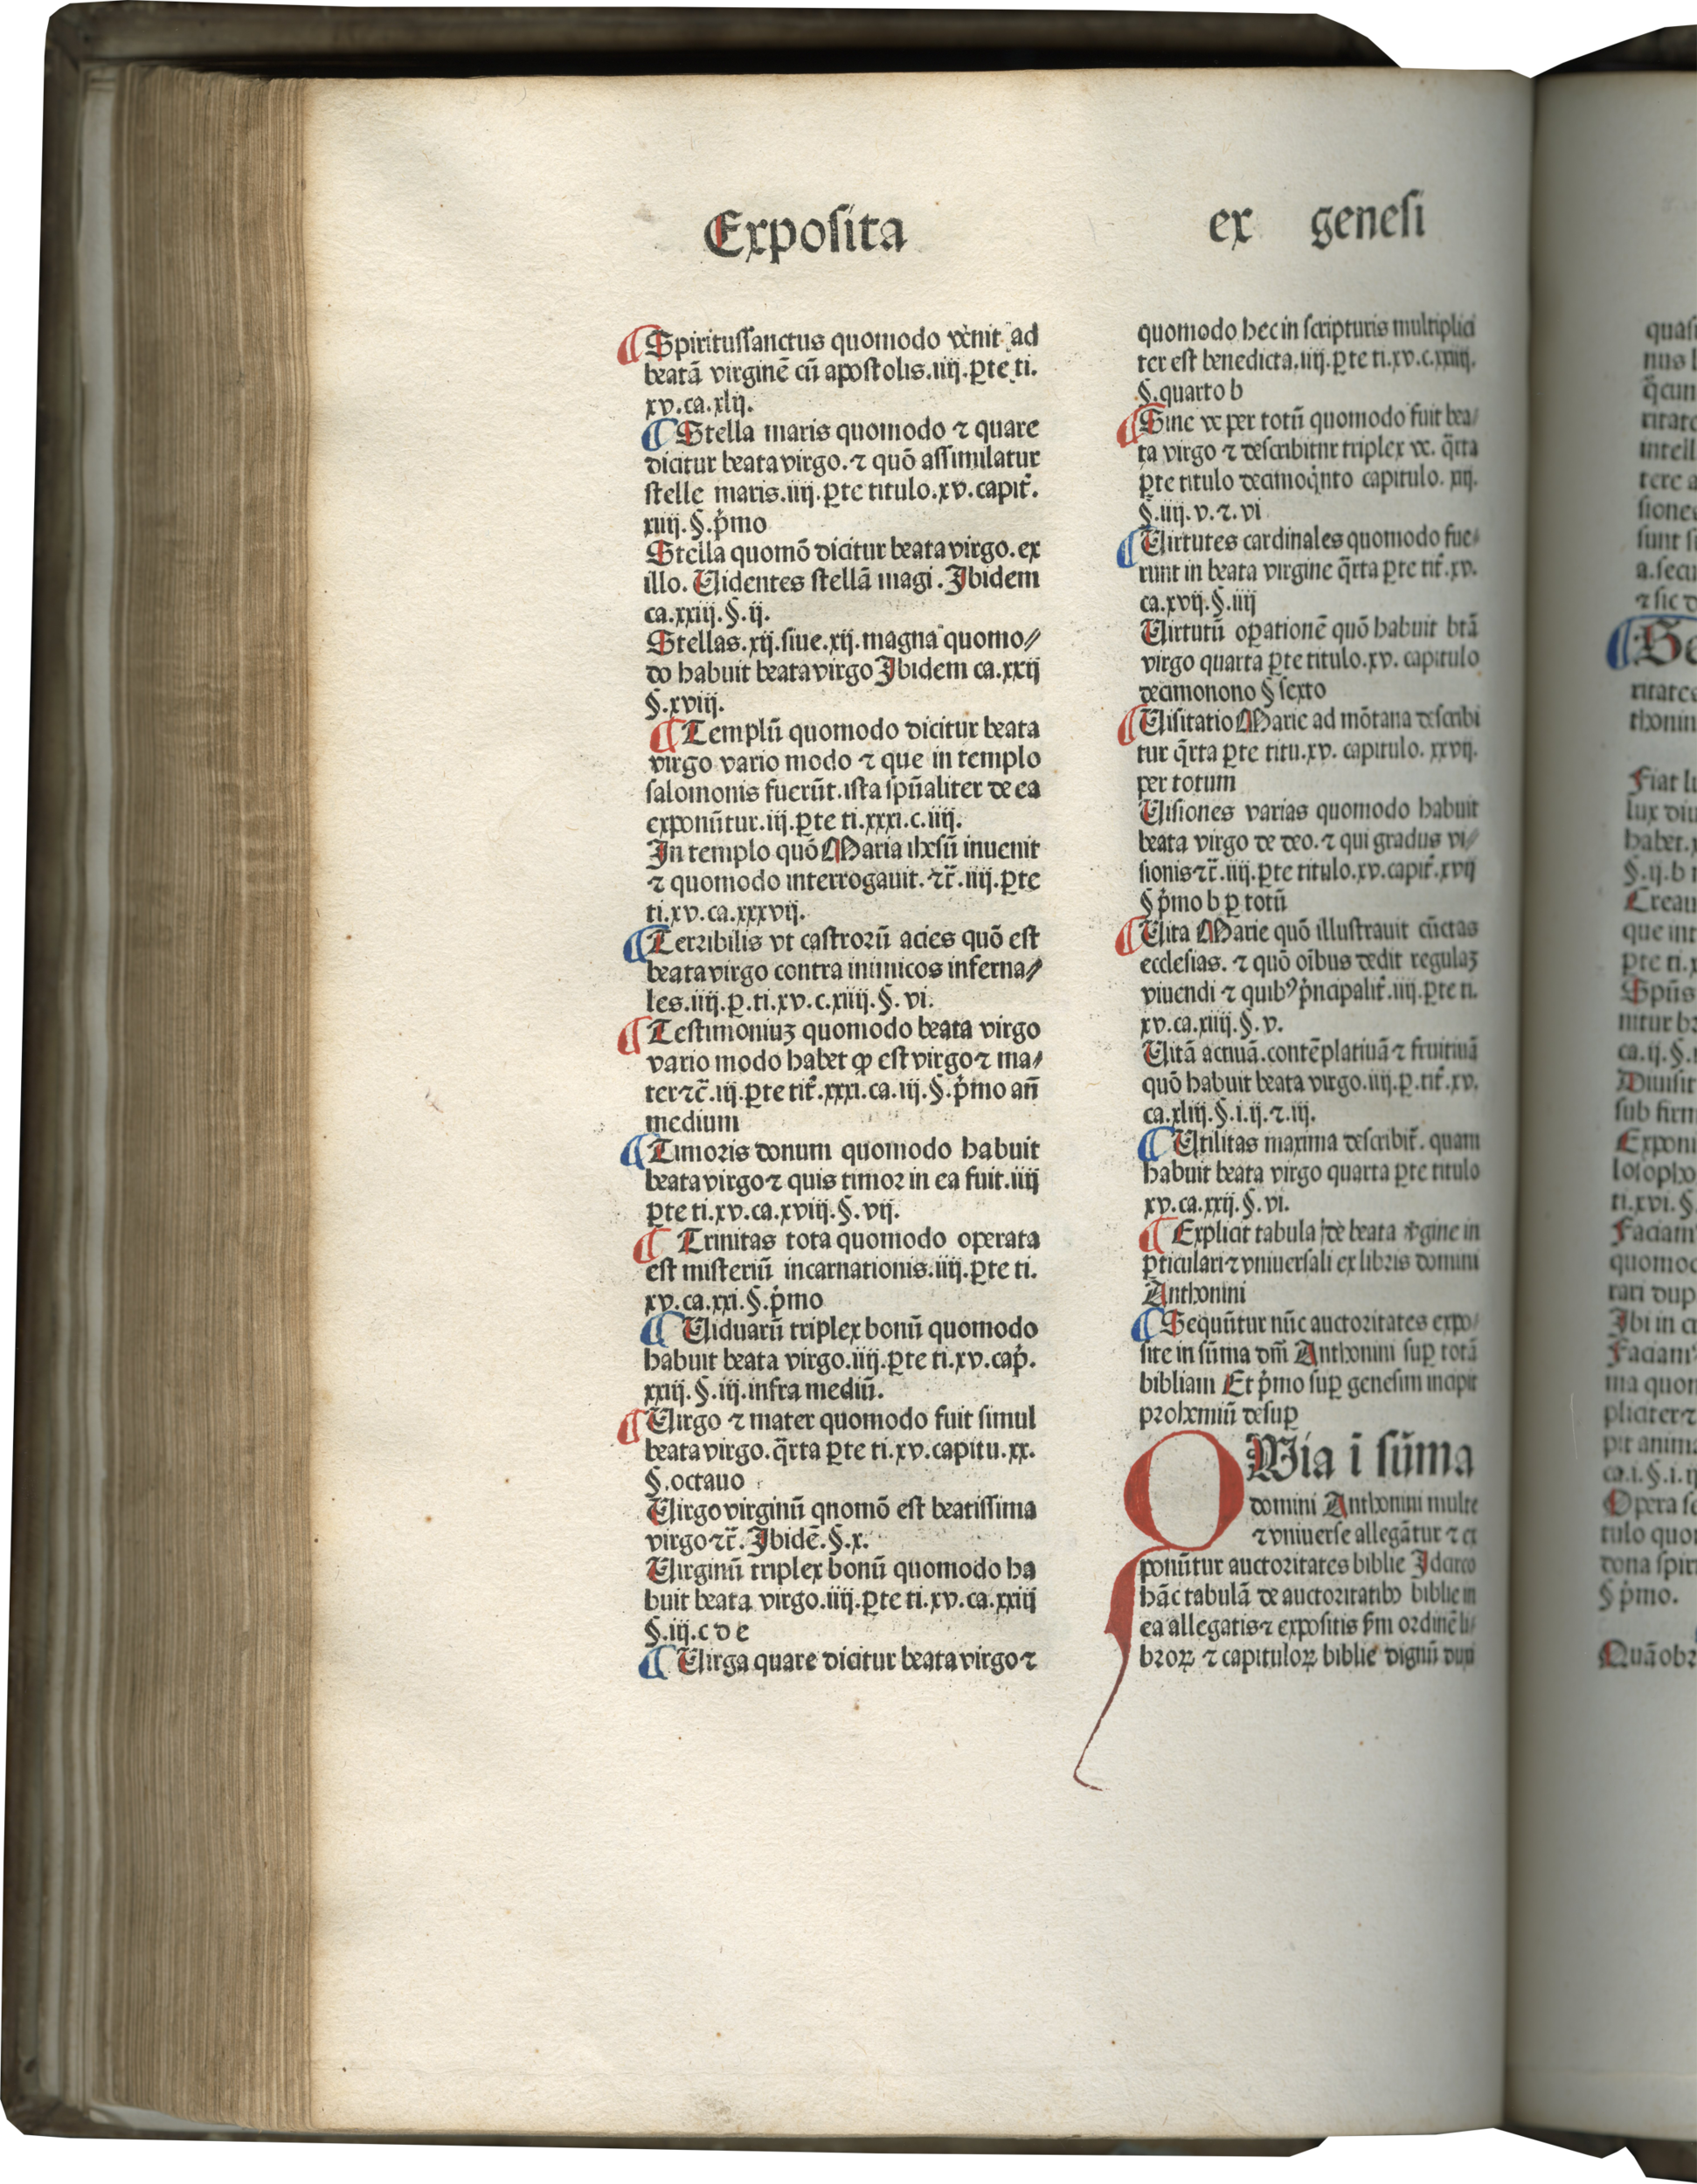 Exposita
ex genesi
¶ Spiritussanctus quomodo venit ad
beatã virginẽ cũ apostolis.iiij.ꝑte ti.
xv.ca.xlij.
¶ Stella maris quomodo ⁊ quare
dicitur beata virgo.⁊ quõ assimulatur
stelle maris.iiij.ꝑte titulo.xv.capit̃.
xiiij.§.pͥmo
Stella quomõ dicitur beata virgo.ex
illo. Uidentes stellã magi. Ibidem
ca.xxiij.§.ij.
Stellas.xij.siue.xij.magna quomo⸗
do habuit beata virgo Ibidem ca.xxij
§.xviij.
¶ Templũ quomodo dicitur beata
virgo vario modo ⁊ que in templo
salomonis fuerũt.ista spũaliter de ea
exponũtur.iij.ꝑte ti.xxxi.c.iiij.
In templo quõ Maria ihesũ inuenit
⁊ quomodo interrogauit.⁊c̃.iiij.ꝑte
ti.xv.ca.xxxvij.
¶ Terribilis vt castrorũ acies quõ est
beata virgo contra inimicos inferna⸗
les.iiij.ꝑ.ti.xv.c.xiiij.§.vi.
¶ Testimoniuꝫ quomodo beata virgo
vario modo habet ꝙ est virgo ⁊ ma⸗
ter ⁊c̃.iij.ꝑte tit̃.xxxi.ca.iij.§.pͥmo añ
medium
¶ Timoris donum quomodo habuit
beata virgo ⁊ quis timor in ea fuit.iiij
ꝑte ti.xv.ca.xviij.§.vij.
¶ Trinitas tota quomodo operata
est misteriũ incarnationis.iiij.ꝑte ti.
xv.ca.xxi.§.pͥmo
¶ Uiduarũ triplex bonũ quomodo
habuit beata virgo.iiij.ꝑte ti.xv.cap̃.
xxiij.§.iij.infra mediũ.
¶ Uirgo ⁊ mater quomodo fuit simul
beata virgo.q̃rta ꝑte ti.xv.capitu.xx.
§.octauo
Uirgo virginũ qnomõ est beatissima
virgo ⁊c̃. Ibidẽ.§.x.
Uirginũ triplex bonũ quomodo ha
buit beata virgo.iiij.ꝑte ti.xv.ca.xxiij
§.iij.c d e
¶ Uirga quare dicitur beata virgo ⁊
quomodo hec in scripturis multiplici
ter est benedicta.iiij.ꝑte ti.xv.c.xxiiij.
§.quarto b
¶ Sine ve per totũ quomodo fuit bea⸗
ta virgo ⁊ describitur triplex ve. q̃rta
ꝑte titulo decimoqͥnto capitulo. xij.
§.iiij.v.⁊.vi
¶ Uirtutes cardinales quomodo fue⸗
runt in beata virgine q̃rta ꝑte tit̃.xv.
ca.xvij.§.iiij
Uirtutũ oꝑationẽ quõ habuit btã
virgo quarta ꝑte titulo.xv. capitulo
decimonono § sexto
¶ Uisitatio Marie ad mõtana describi
tur q̃rta ꝑte titu.xv. capitulo. xxvij.
per totum
Uisiones varias quomodo habuit
beata virgo de deo.⁊ qui gradus vi⸗
sionis ⁊c̃.iiij.ꝑte titulo.xv.capit̃.xvij
§ pͥmo b ꝑ totũ
¶ Uita Marie quõ illustrauit cũctas
ecclesias.⁊ quõ oĩbus dedit regulaꝫ
viuendi ⁊ quibꝰ pͥncipalit̃.iiij.ꝑte ti.
xv.ca.xiiij.§.v.
Uitã actiuã.contẽplatiuã ⁊ fruitiuã
quõ habuit beata virgo.iiij.ꝑ.tit̃.xv.
ca.xliij.§.i.ij.⁊.iij.
¶ Utilitas maxima describit̃. quam
habuit beata virgo quarta ꝑte titulo
xv.ca.xxij.§.vi.
¶ Explicit tabula de beata vͥgine in
ꝑticulari ⁊ vniuersali ex libris domini
Anthonini
¶ Sequũtur nũc auctoritates expo⸗
site in sũma dñi Anthonini suꝑ totã
bibliam Et pͥmo suꝑ genesim incipit
prohemiũ desuꝑ
QWia ĩ sũma
domini Anthonini multe
⁊ vniuerse allegãtur ⁊ ex
ponũtur auctoritates biblie Idcirco
hãc tabulã de auctoritatibꝰ biblie in
ea allegatis ⁊ expositis ẜm ordinẽ li⸗
broꝝ ⁊ capituloꝝ biblie dignũ duxi